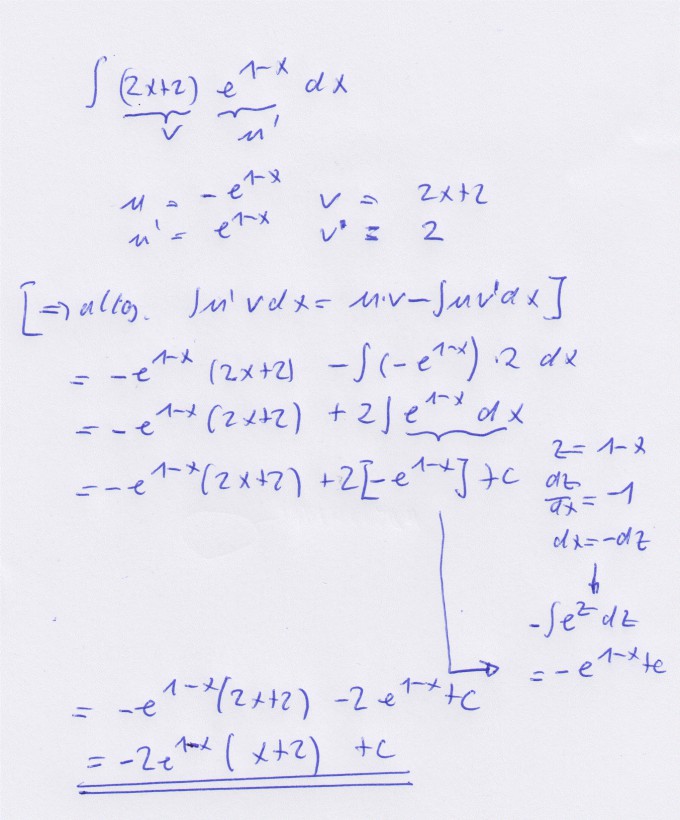 ∫ (2x+2) e^{1-x} dx
v u'
u = -e^{1-x} v = 2x+2
u' = e^{1-x} v' = 2
[⇒ allg. ∫u'vdx = u·v-∫uv'dx]
= -e^{1-x} (2x+2) -∫(-e^{1-x}) ·2 dx
= -e^{1-x} (2x+2) + 2∫e^{1-x} dx
= -e^{1-x} (2x+2) +2[-e^{1-x}] +C
z = 1-x
dz/dx = -1
dx = -dz
↓
-∫e^z dz
= -e^{1-x}+c
= -e^{1-x}(2x+2) -2 e^{1-x}+C
= -2e^{1-x} (x+2) +C